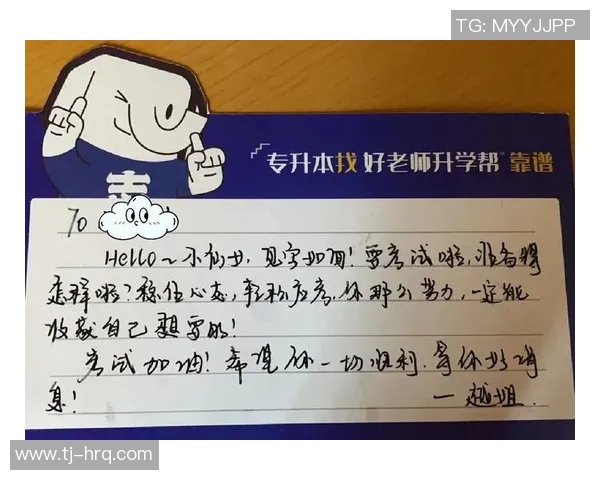 TG: MYYJJPP
专升本找好老师升学帮 靠谱
志
To
Hello~小仙女,见字如面!要考试啦,准备得
怎样啦?稳住心态,轻松应考,你那么努力,一定能
收获自己想要的!
考试加油!希望你一切顺利,等你好消
息!
—越姐.
www.tj-hrq.com